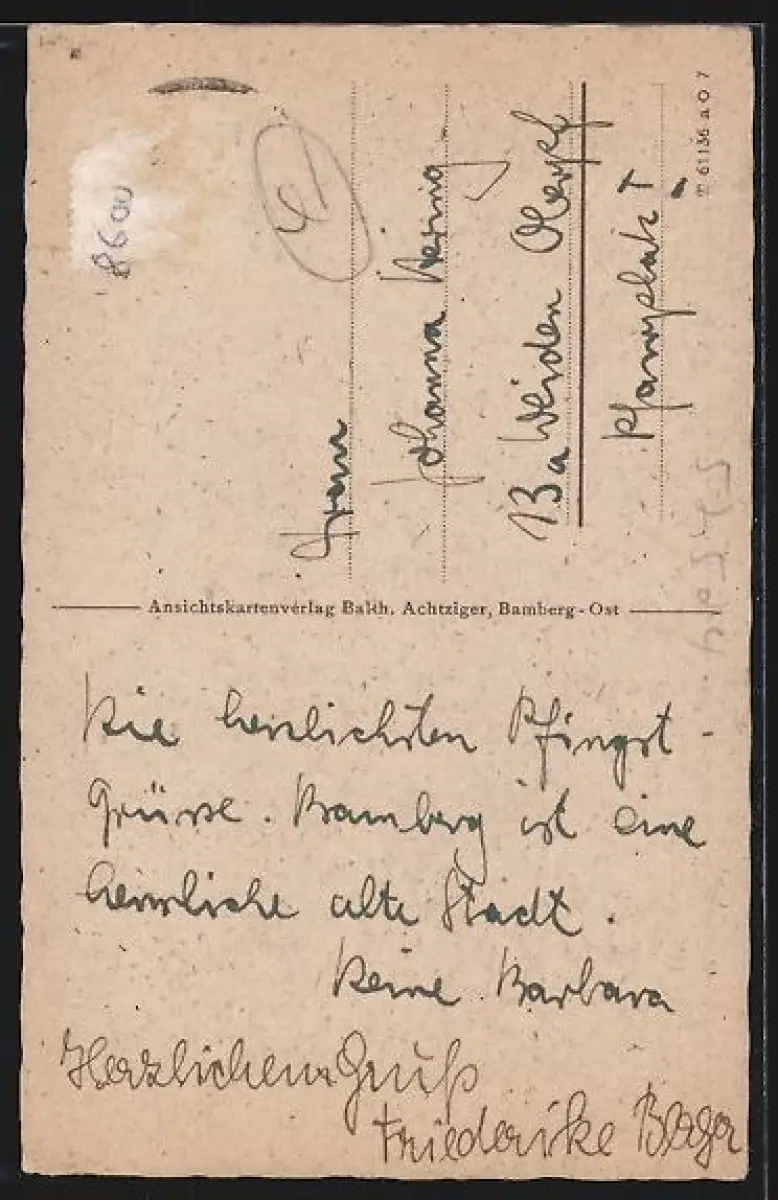 8600
Frau
Johanna Hering
Weiden Oberpf
Pfarrplatz
61136 a O 7
Ansichtskartenverlag Balth. Achtziger, Bamberg-Ost
Die herzlichsten Pfingst-
Grüsse. Bamberg ist eine
herrliche alte Stadt.
Deine Barbara
Herzlichen Gruß
Friederike